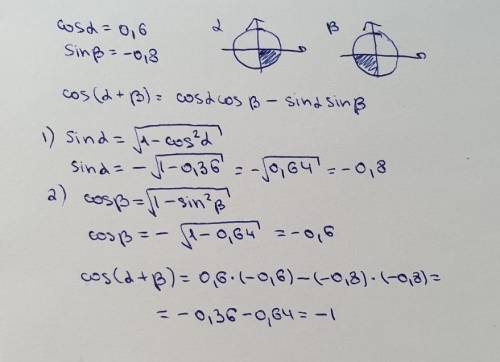 cosα = 0,6
sinβ = -0,8
α
β
cos(α + β) = cosα cosβ - sinα sinβ
1) sinα = √(1 - cos²α)
sinα = - √(1 - 0,36) = -√(0,64) = -0,8
2) cosβ = √(1 - sin²β)
cosβ = - √(1 - 0,64) = -0,6
cos(α + β) = 0,6 · (-0,6) - (-0,8) · (-0,8) =
= - 0,36 - 0,64 = -1